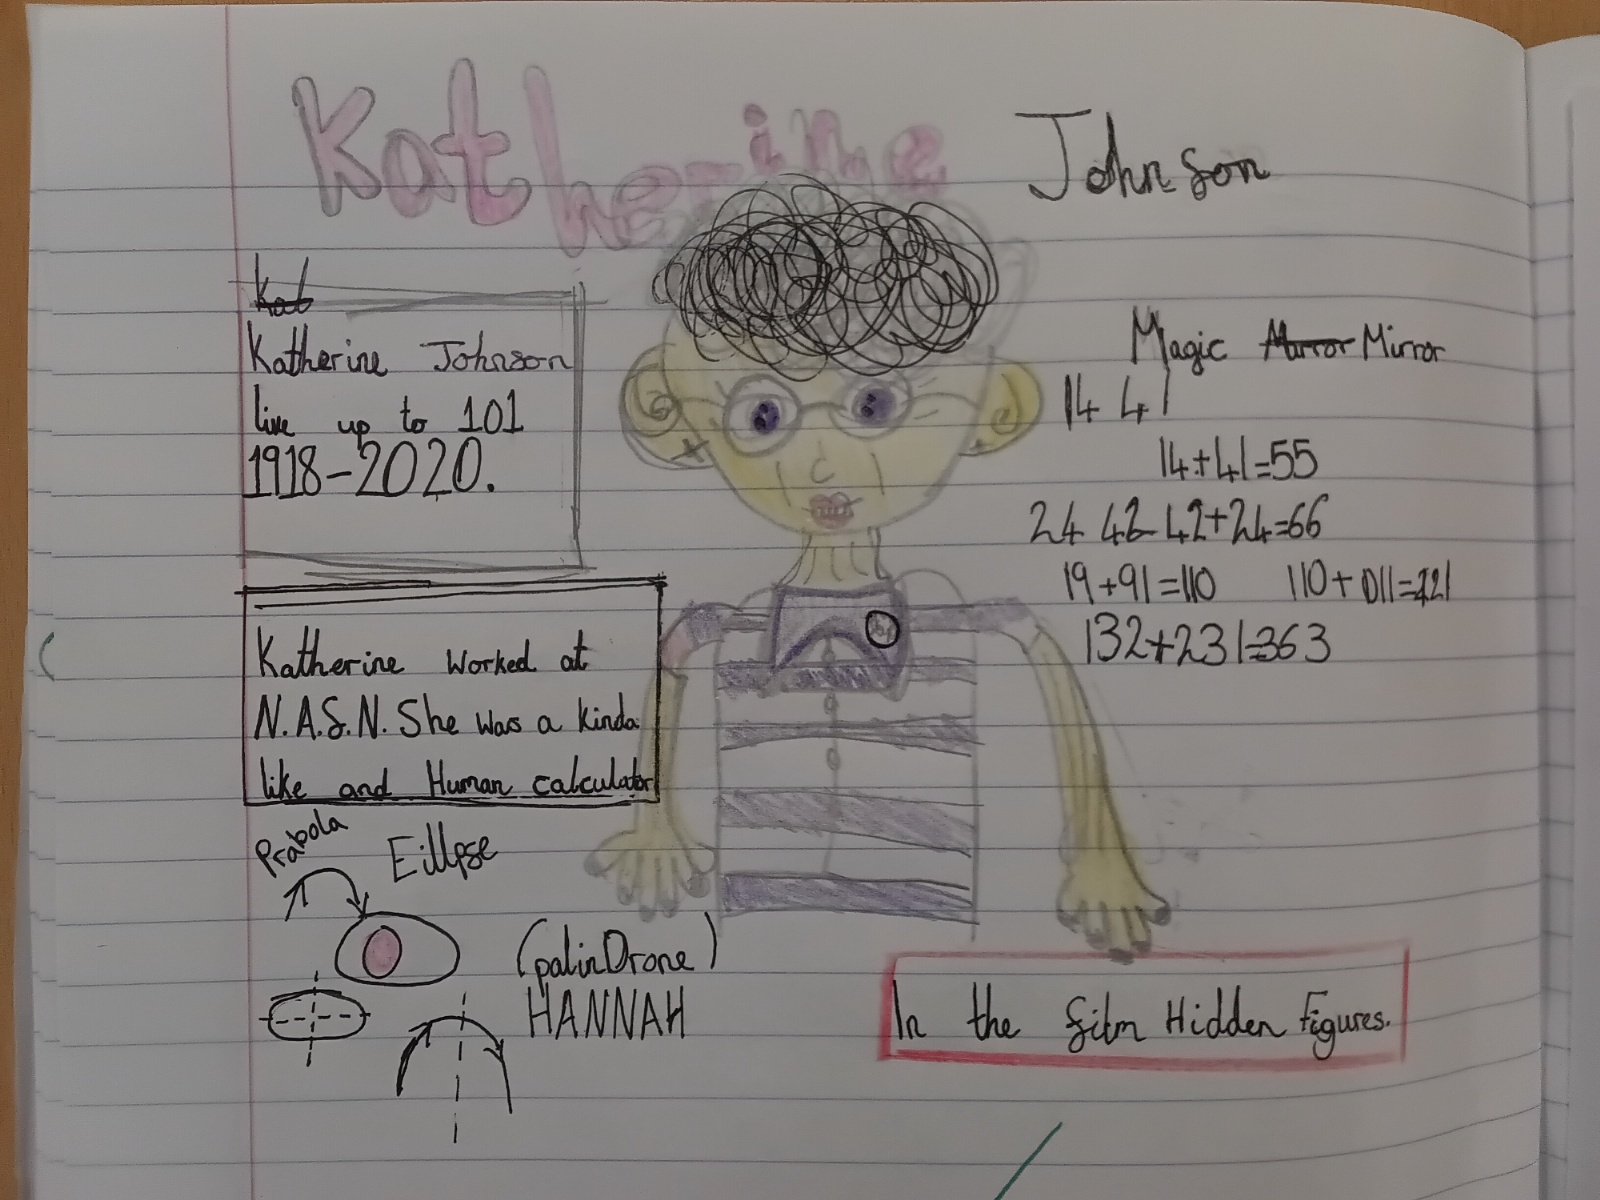 Katherine Johnson
Kat
Katherine Johnson
live up to 101
1918-2020.
Katherine worked at
N.A.S.N. She was a kinda
like and Human calculator
Prabola
Eillpse
(palinDrone)
HANNAH
Magic Mirror Mirror
14 41
14+41=55
24 42 42+24=66
19+91=110 110+011=121
132+231=363
In the film Hidden Figures.